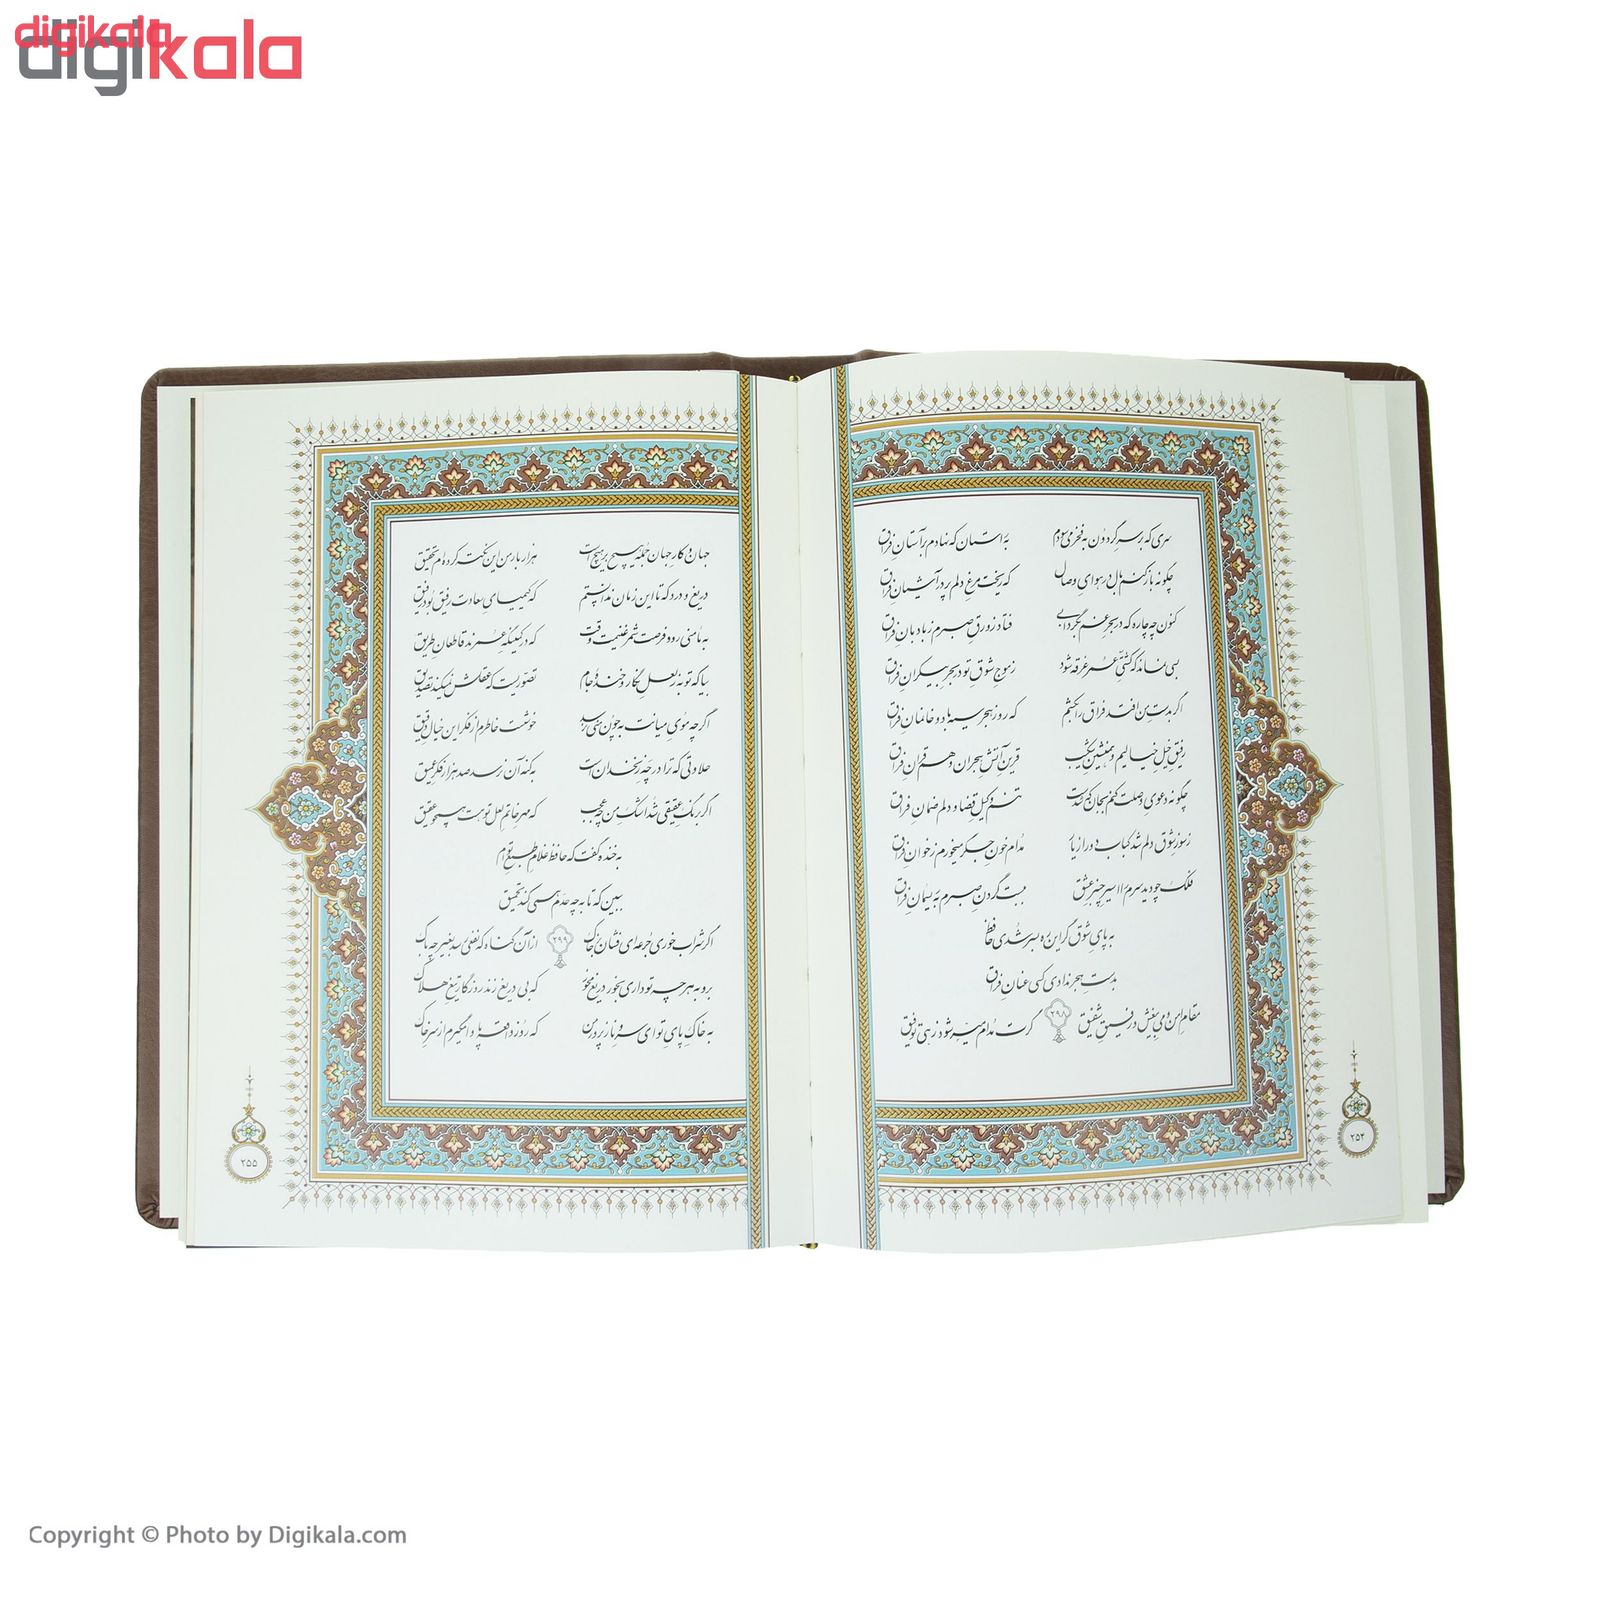 digikala
digikala
سری که بر سر گردون به فخر می‌سودم به راستان که نهادم بر آستان فراق
چگونه باز کنم بال در هوای وصال که ریخت مرغ دلم پر در آشیان فراق
کنون چه چاره که در بحر غم به گردابی فتاد زورق صبرم ز بادبان فراق
بسی نماند که کشتی عمر غرقه شود ز موج شوق تو در بحر بیکران فراق
اگر به دست من افتد فراق را بکشم که روز هجر سیه باد و خانمان فراق
رفیق خیل خیالیم و همنشین شکیب قرین آتش هجران و هم قران فراق
چگونه دعوی وصلت کنم به جان که شدست تنم وکیل قضا و دلم ضمان فراق
ز سوز شوق دلم شد کباب دور از یار مدام خون جگر میخورم ز خوان فراق
فلک چو دید سرم را اسیر چنبر عشق ببست گردن صبرم به ریسمان فراق
به پای شوق گر این ره به سر شدی حافظ
به دست هجر ندادی کسی عنان فراق
۲۹۸
مقام امن و می بیغش و رفیق شفیق گرت مدام میسر شود زهی توفیق
۲۵۴
جهان و کار جهان جمله هیچ بر هیچ است هزار بار من این نکته کرده‌ام تحقیق
دریغ و درد که تا این زمان ندانستم که کیمیای سعادت رفیق بود رفیق
به مأمنی رو و فرصت شمر غنیمت وقت که در کمینگه عمرند قاطعان طریق
بیا که توبه ز لعل نگار و خنده جام تصوریست که عقلش نمیکند تصدیق
اگر چه موی میانت به چون منی نرسد خوشست خاطرم از فکر این خیال دقیق
حلاوتی که ترا در چه زنخدان است به کنه آن نرسد صد هزار فکر عمیق
اگر به رنگ عقیقی شد اشک من چه عجب که مهر خاتم لعل تو هست همچو عقیق
به خنده گفت که حافظ غلام طبع توام
ببین که تا به چه حدم همی کند تحمیق
۲۹۹
اگر شراب خوری جرعه‌ای فشان بر خاک از آن گناه که نفعی رسد به غیر چه باک
برو به هر چه تو داری بخور دریغ مخور که بی دریغ زند روزگار تیغ هلاک
به خاک پای تو ای سرو نازپرور من که روز واقعه پا وامگیرم از سر خاک
۲۵۵
Copyright © Photo by Digikala.com